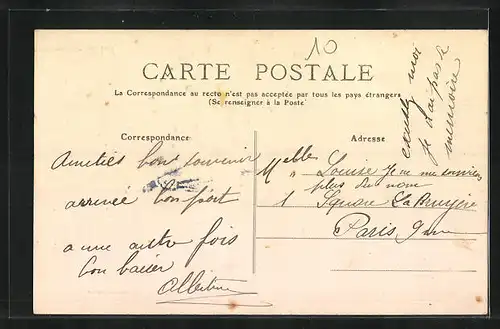 10
CARTE POSTALE
La Correspondance au recto n'est pas acceptée par tous les pays étrangers
(Se renseigner à la Poste)
Correspondance
Adresse
Amitiés bon souvenir
arrivée bon port
a une autre fois
bon baiser
Albertine
Melle Louise Je me souviens
plus du nom
1 Square La Bruyère
Paris 9me
excuse moi
Je n'ai pas de
mémoire